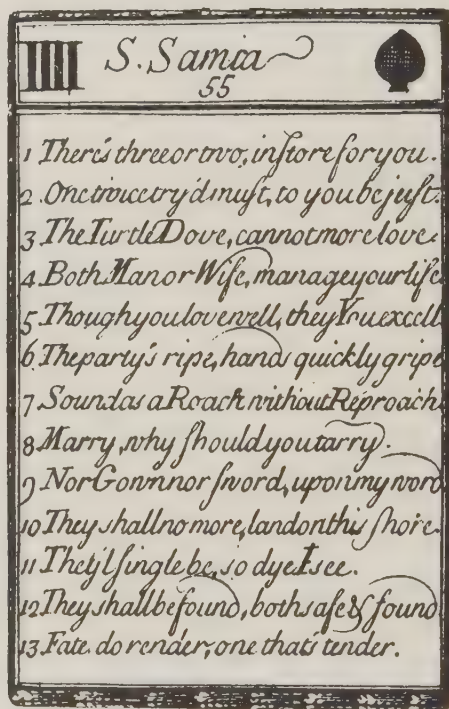 IIII S. Samia
55
1 There's three or two, in ſtore for you.
2 One twice try'd muſt, to you be juſt.
3 The Turtle Dove, cannot more love.
4 Both Man or Wife, manage your life
5 Though you love well, they You excell
6 The party's ripe, hands quickly gripe
7 Sound as a Roach without Reproach
8 Marry, why ſhould you tarry.
9 Nor Gown nor ſword, upon my word
10 They shall no more, land on this ſhore.
11 They'l ſingle be, so dye I see.
12 They shall be found, both safe & ſound
13 Fate do render, one that's tender.